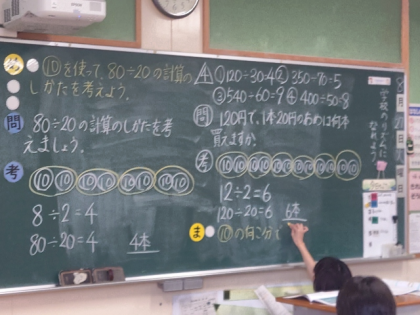 め
⑩を使って、80÷20の計算の
しかたを考えよう。
問
80÷20の計算のしかたを考
えましょう。
考
⑩⑩ ⑩⑩ ⑩⑩ ⑩⑩
8÷2=4
80÷20=4 4本
①120÷30=4 ② 350÷70=5
③540÷60=9 ④ 400÷50=8
問
120円で、1本20円のあめは何本
買えますか
考
⑩⑩⑩⑩⑩⑩⑩⑩⑩⑩⑩⑩
12÷2=6
120÷20=6 6本
ま
⑩の何こ分
学校のリズムに
なれよう
8月
日
曜日